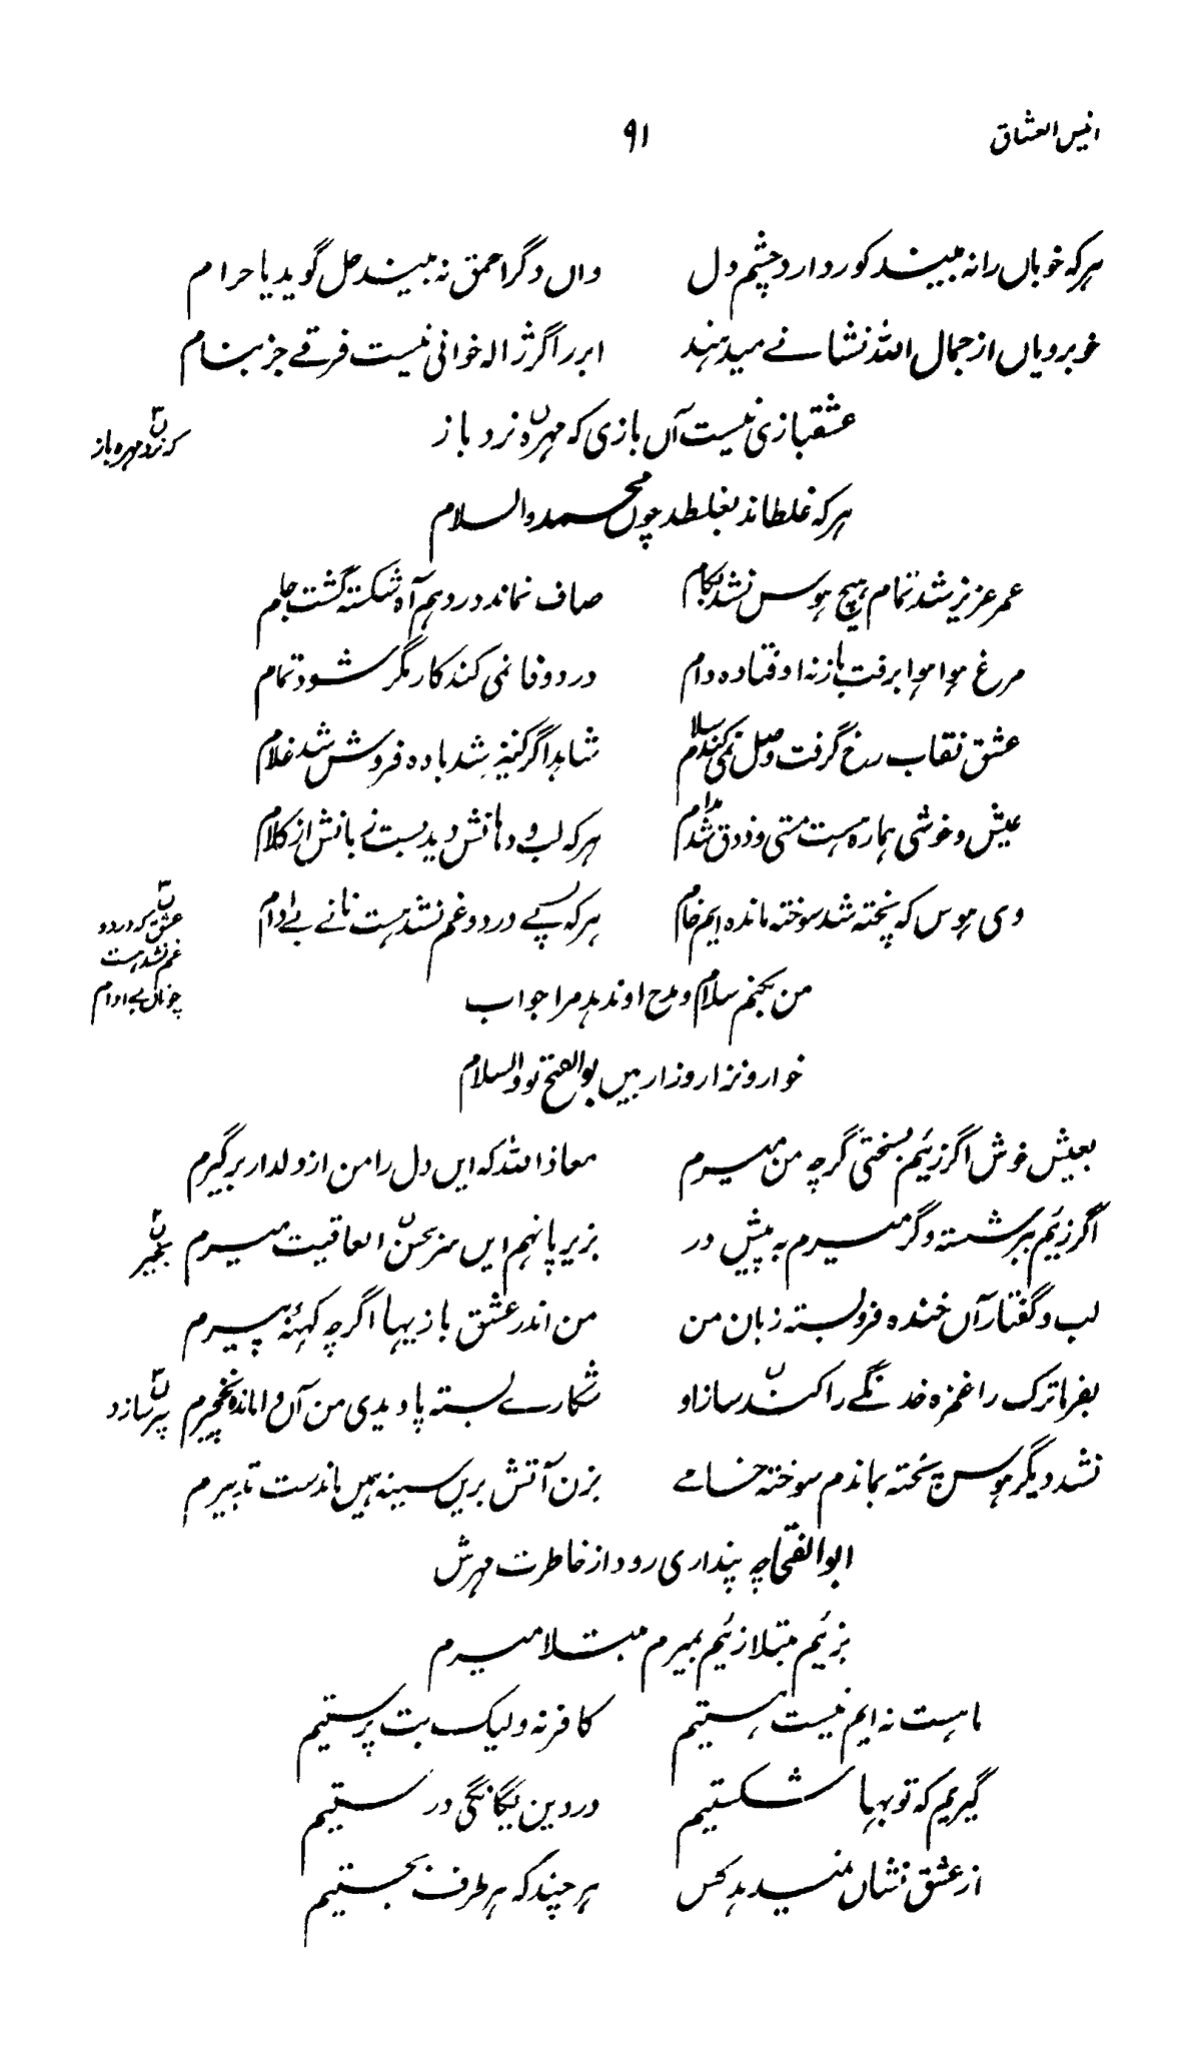 انیس العشاق ۹۱
ہرکہ خوباں را نہ بیند کور دارد چشم دل واں دگر احمق نہ بیند حل گوید یا حرام
خوبرویاں از جمال اللہ نشانے میدہند ابر را گر ژالہ خوانی نیست فرقے جز بنام
عشقبازی نیست آں بازی کہ مہرہ نرد باز
کہ نرد مہرہ باز
ہرکہ غلطاند بغلطد چوں محمد والسلام
عمر عزیز شد تمام ہیچ ہوس نشد بکام صاف نماند درد ہم آہ شکستہ گشت جام
مرغ ہوا ہوا برفت باز نہ اوفتادہ دام درد وفا نمی کند کار مگر شود تمام
عشق نقاب رخ گرفت وصل نمی کند سلام شاہد اگر کنیز شد بادہ فروش شد غلام
عیش و خوشی ہمارہ ہست مستی و ذوق شد مدام ہرکہ لب و دہانش دید بست زبانش از کلام
وی ہوس کہ پختہ شد سوختہ ماندہ ایم خام ہرکہ پے درد و غم نشد ہست نانے بے ادام
عشق کہ درد و
غم نشد ہست
چو نان بے ادام
من بکنم سلام و مدح او ندہد مرا جواب
خوار و نزار و زار بیں بوالفتح تو والسلام
بعیش خوش اگر زیَم بسختی گرچہ من میرم معاذ اللہ کہ ایں دل را من از دلدار برگیرم
اگر زیَم سرشتہ وگر میرم بہ پیش در بزیر پا نہم ایں سر بحسن العاقبت میرم
لب و گفتار آں خندہ فروبستہ زبان من من اندر عشق بازیہا اگرچہ کہنۂ پیرم
بفرما ترک را غمزہ خدنگے را کند ساز او شکارے بستہ پا دیدی من آں واماندہ نخچیرم
تیر سازد
نشد دیگر ہوس پختہ بماندم سوختہ خامے بزن آتش بریں سینہ ہمیں ماندست تدبیرم
ابوالفتحا چہ پنداری رود از خاطرت مہرش
بزیَم مبتلا زیَم بمیرم مبتلا میرم
ما ہست نہ ایم نیست ہستیم کافر نہ ولیک بت پرستیم
گیریم کہ توبہا شکستیم در دین یگانگی درستیم
از عشق نشاں نمیدہد کس ہر چند کہ ہر طرف بجستیم